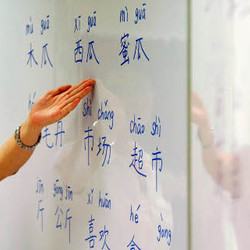 mù guā xī guā mì guā
木瓜 西瓜 蜜瓜
shì chǎng chāo shì
毛丹 市场 超市
jīn gōng jīn xǐ huān hé gōng
斤 公斤 喜欢